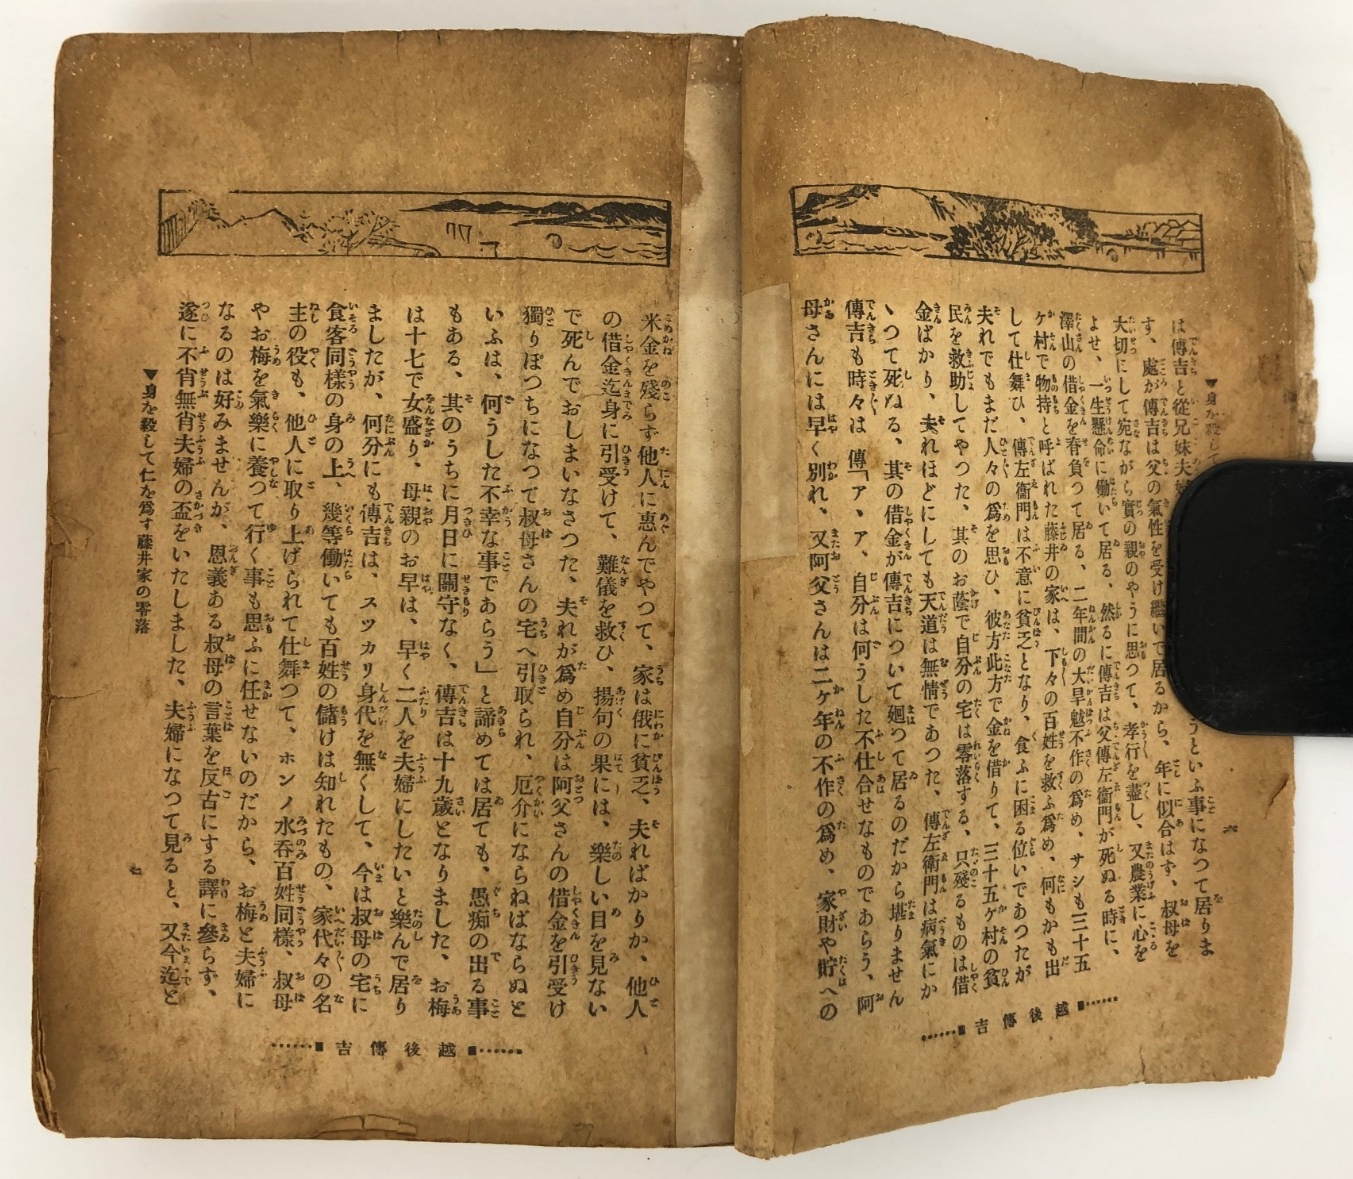 ▼身を殺して
は傳吉と從兄妹夫婦
うといふ事になつて居りま
す、處が傳吉は父の氣性を受け繼いで居るから、年に似合はず、叔母を
大切にして宛ながら實の親のやうに思つて、孝行を盡し、又農業に心を
よせ、一生懸命に働いて居る、然るに傳吉は父傳左衞門が死ぬる時に、
澤山の借金を脊負つて居る、二年間の大旱魃不作の爲め、サシも三十五
ケ村で物持と呼ばれた藤井の家は、下々の百姓を救ふ爲め、何もかも出
して仕舞ひ、傳左衞門は不意に貧乏となり、食ふに困る位いであつたが
夫れでもまだ人々の爲を思ひ、彼方此方で金を借りて、三十五ケ村の貧
民を救助してやつた、其のお蔭で自分の宅は零落する、只殘るものは借
金ばかり、夫れほどにしても天道は無情であつた、傳左衞門は病氣にか
ゝつて死ぬる、其の借金が傳吉について廻つて居るのだから堪りません
傳吉も時々は 傳「ア、ア、自分は何うした不仕合せなものであらう、阿
母さんには早く別れ、又阿父さんは二ケ年の不作の爲め、家財や貯への
六
越後傳吉
米金を殘らず他人に惠んでやつて、家は俄に貧乏、夫ればかりか、他人
の借金迄身に引受けて、難儀を救ひ、揚句の果には、樂しい目を見ない
で死んでおしまいなさつた、夫れが爲め自分は阿父さんの借金を引受け
獨りぼつちになつて叔母さんの宅へ引取られ、厄介にならねばならぬと
いふは、何うした不幸な事であらう」と諦めては居ても、愚痴の出る事
もある、其のうちに月日に關守なく、傳吉は十九歳となりました、お梅
は十七で女盛り、母親のお早は、早く二人を夫婦にしたいと樂んで居り
ましたが、何分にも傳吉は、スツカリ身代を無くして、今は叔母の宅に
食客同樣の身の上、幾等働いても百姓の儲けは知れたもの、家代々の名
主の役も、他人に取り上げられて仕舞つて、ホンノ水呑百姓同樣、叔母
やお梅を氣樂に養つて行く事も思ふに任せないのだから、お梅と夫婦に
なるのは好みませんが、恩義ある叔母の言葉を反古にする譯に參らず、
遂に不肖無肖夫婦の盃をいたしました、夫婦になつて見ると、又今迄と
▼身を殺して仁を爲す藤井家の零落
七
越後傳吉